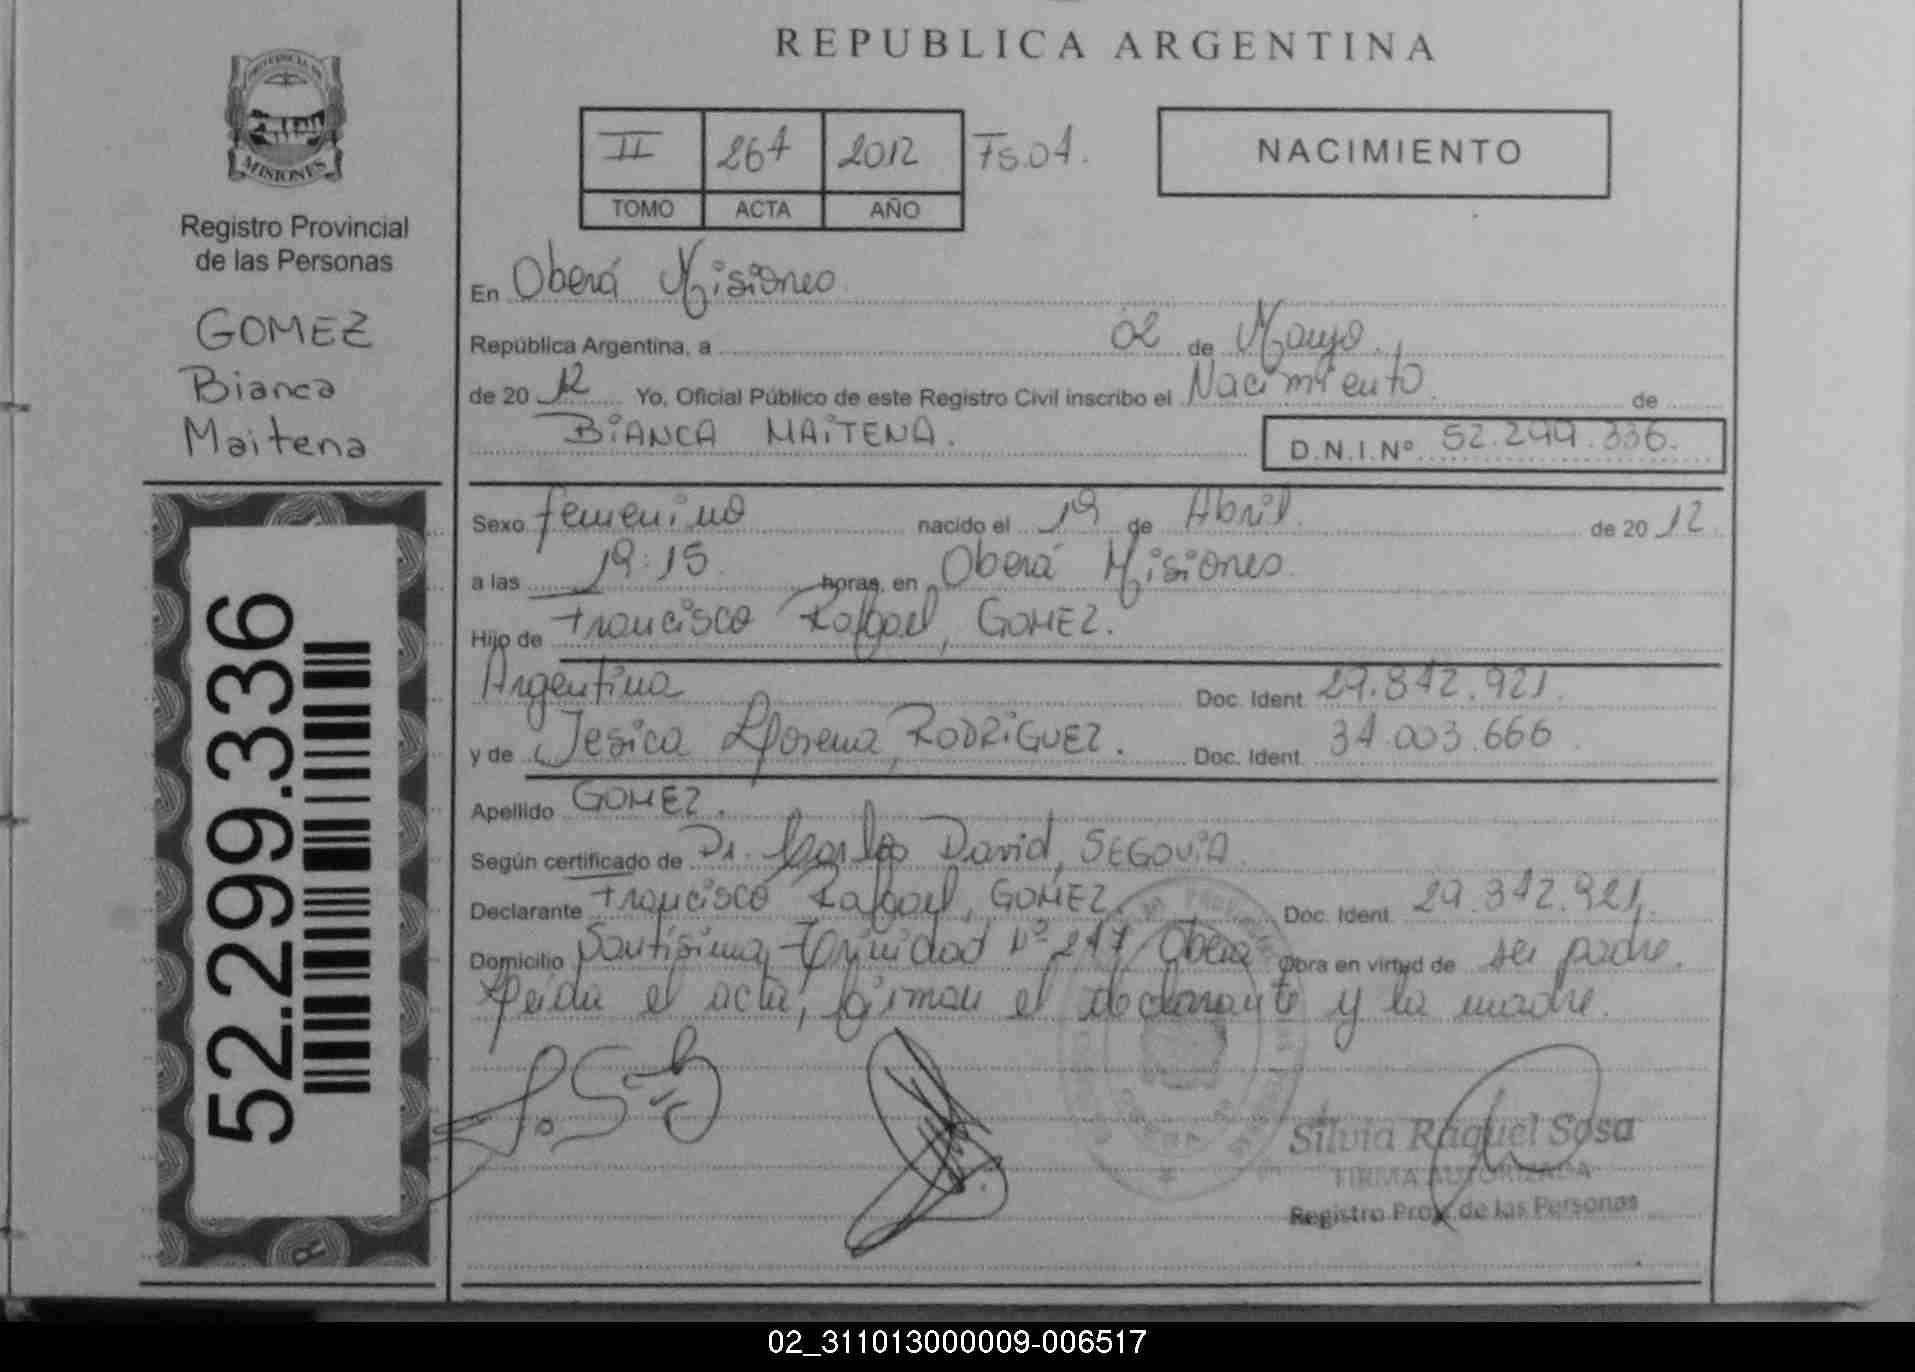 REPUBLICA ARGENTINA
PROVINCIA DE
MISIONES
Registro Provincial
de las Personas
GOMEZ
Bianca
Maitena
52.299.336
II 267 2012 Fs.04.
TOMO ACTA AÑO
NACIMIENTO
En Oberá Misiones
República Argentina, a 02 de Mayo
de 20 12 Yo, Oficial Público de este Registro Civil inscribo el Nacimiento de
BIANCA MAITENA. D.N.I.Nº 52.299.336.
Sexo femenino nacido el 19 de Abril de 20 12
a las 19:15 horas, en Oberá Misiones
Hijo de Francisco Rafael, GOMEZ.
Argentina Doc. Ident. 29.842.921.
y de Jesica Lorena, RODRIGUEZ. Doc. Ident. 34.003.666
Apellido GOMEZ.
Según certificado de Dr. Carlos David, SEGOVIA
Declarante Francisco Rafael, GOMEZ. Doc. Ident. 29.842.921.
Domicilio Santísima Trinidad Nº 217 Oberá Obra en virtud de ser padre.
Leída el acta, firman el declarante y la madre.
Silvia Raquel Sosa
FIRMA AUTORIZADA
Registro Prov. de las Personas
02_311013000009-006517